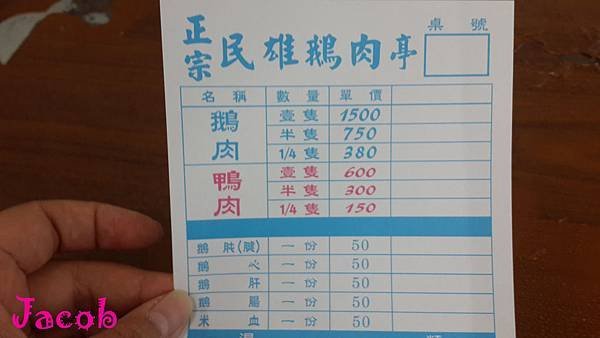 正宗民雄鵝肉亭
桌號
名稱 數量 單價
鵝肉 壹隻 1500
半隻 750
1/4隻 380
鴨肉 壹隻 600
半隻 300
1/4隻 150
鵝肫(腱) 一份 50
鵝心 一份 50
鵝肝 一份 50
鵝腸 一份 50
米血 一份 50
湯 類
Jacob